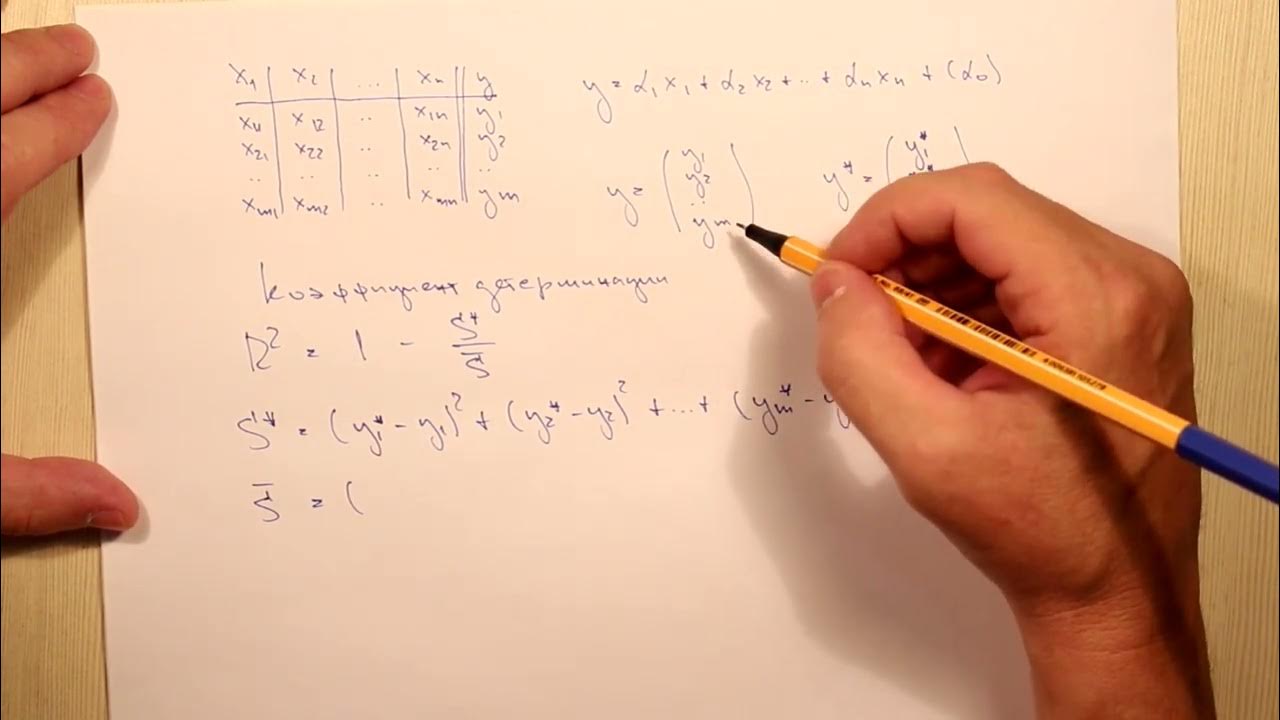 x₁ | x₂ | ... | xₙ || y
x₁₁ | x₁₂ | .. | x₁ₙ || y₁
x₂₁ | x₂₂ | .. | x₂ₙ || y₂
.. | .. | .. | .. || ..
xₘ₁ | xₘ₂ | .. | xₘₙ || yₘ
y = α₁x₁ + α₂x₂ + .. + αₙxₙ + (α₀)
y = ( y₁
y₂
..
yₘ )
y* = ( y₁*
Коэффициент детерминации
R² = 1 - S*/S̄
S* = (y₁* - y₁)² + (y₂* - y₂)² + ... + (yₘ* - y
S̄ = (